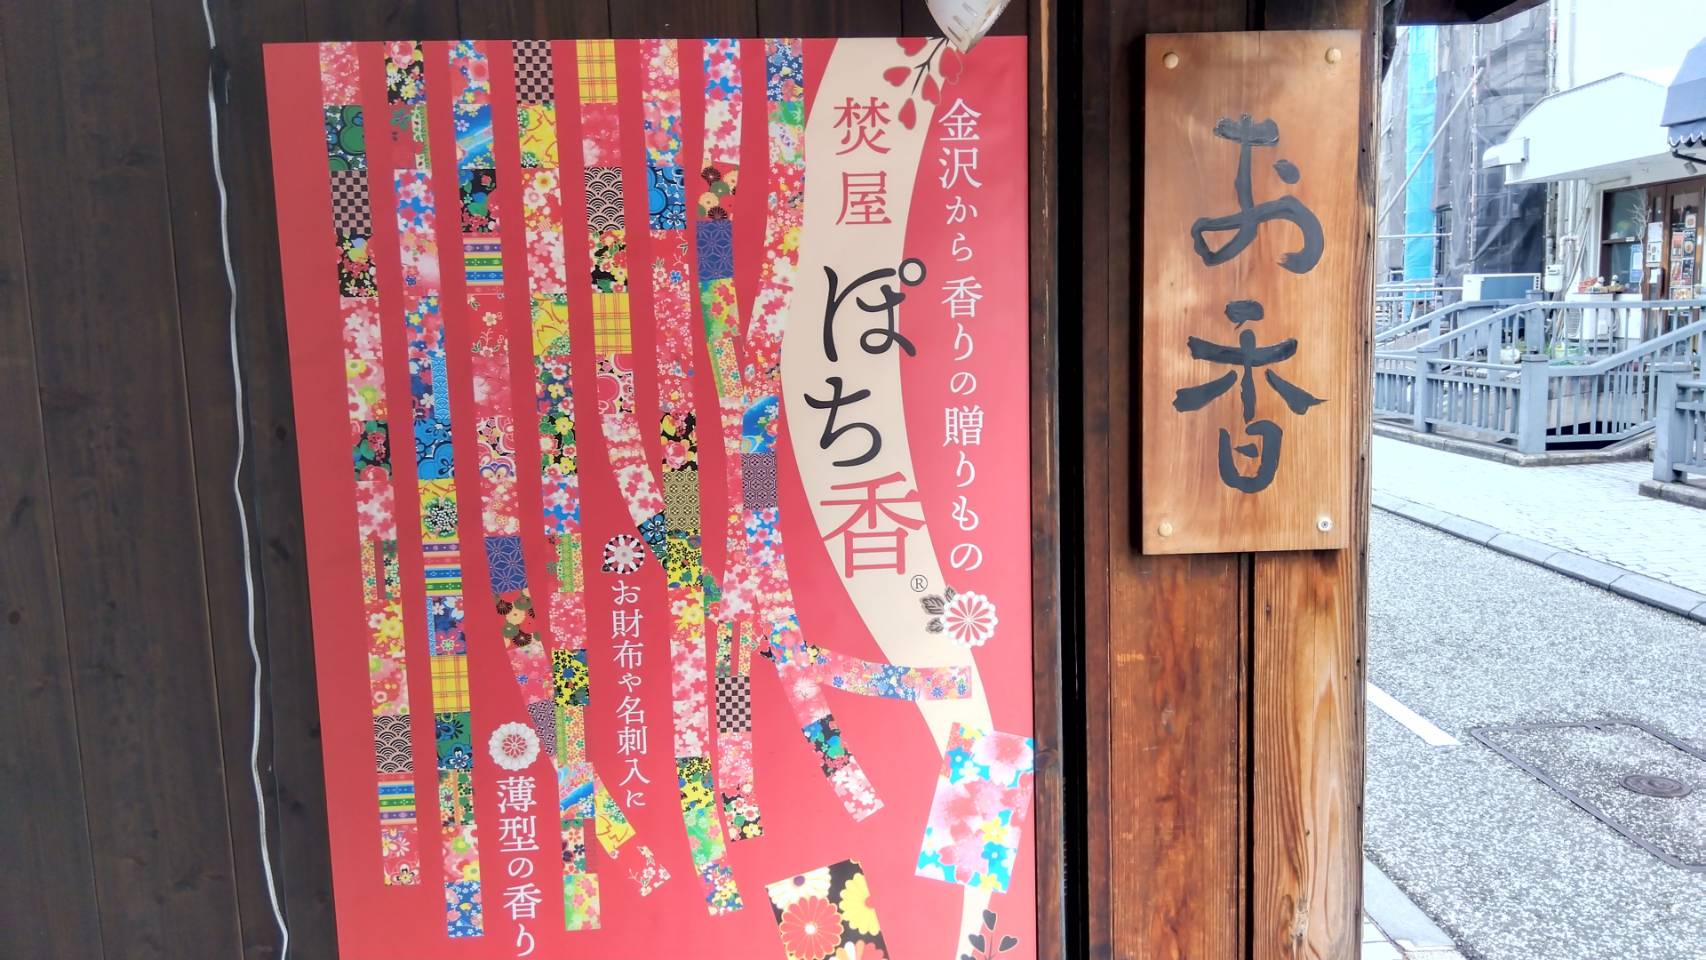 お香
金沢から香りの贈りもの
焚屋
ぽち香®
お財布や名刺入に
薄型の香り